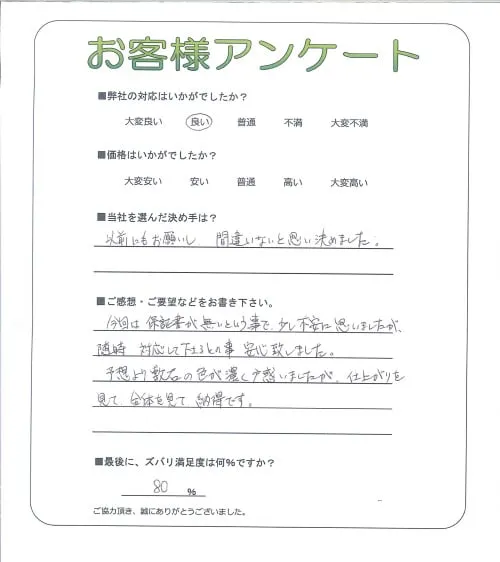 お客様アンケート
■弊社の対応はいかがでしたか？
大変良い 良い 普通 不満 大変不満
■価格はいかがでしたか？
大変安い 安い 普通 高い 大変高い
■当社を選んだ決め手は？
以前にもお願いし 間違いないと思い決めました。
■ご感想・ご要望などをお書き下さい。
今回は保証書が無いという事で、少し不安に思いましたが、
随時 対応して下さるとの事 安心致しました。
予想より敷石の色が濃く戸惑いましたが、仕上がりを
見て 全体を見て 納得です。
■最後に、ズバリ満足度は何％ですか？
80 %
ご協力頂き、誠にありがとうございました。